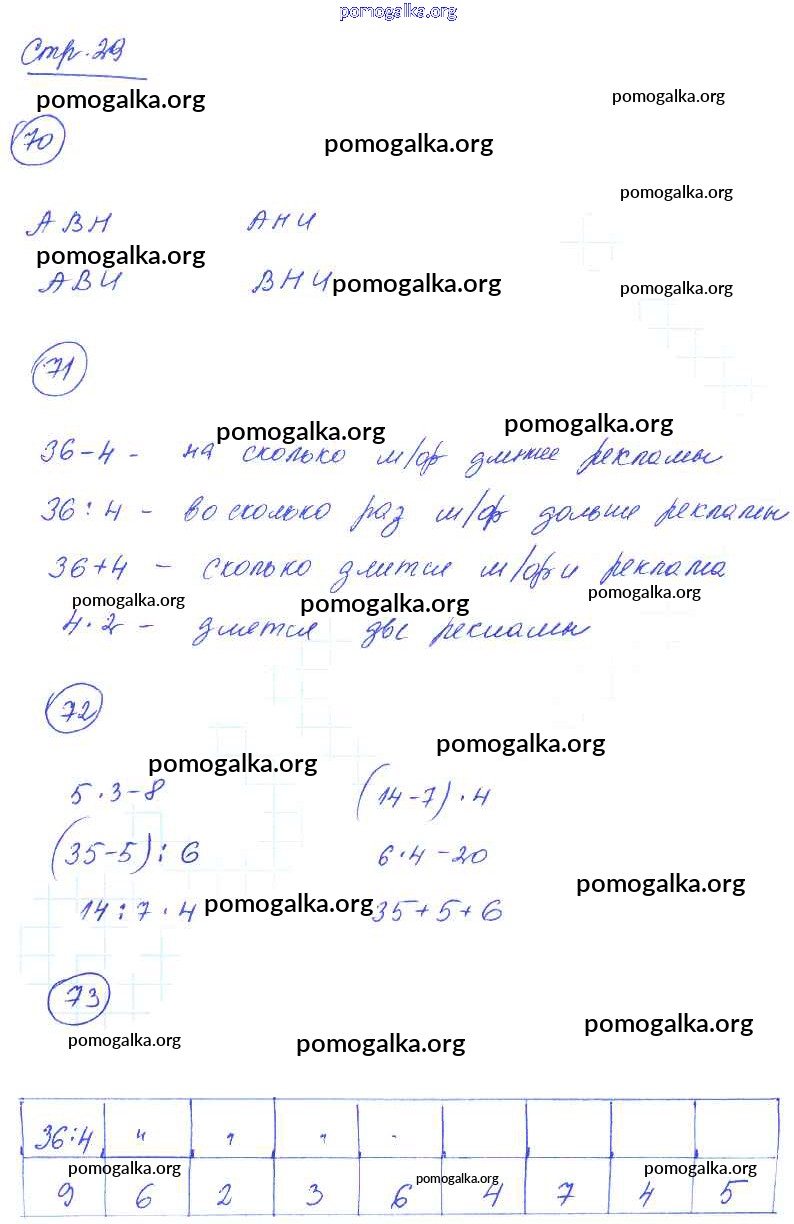 pomogalka.org
Стр. 29
pomogalka.org pomogalka.org
70 pomogalka.org
pomogalka.org
АВН АНИ
pomogalka.org
АВИ ВНИ pomogalka.org pomogalka.org
71
pomogalka.org pomogalka.org
36-4 - на сколько м/ф длиннее рекламы
36:4 - во сколько раз м/ф дольше рекламы
36+4 - сколько длится м/ф и реклама
pomogalka.org pomogalka.org pomogalka.org
4·2 - длится две рекламы
72
pomogalka.org pomogalka.org
5·3-8 (14-7)·4
(35-5):6 6·4-20
pomogalka.org
14:7·4 pomogalka.org 35+5+6
73
pomogalka.org pomogalka.org pomogalka.org
36:4 " " " -
pomogalka.org pomogalka.org pomogalka.org
9 6 2 3 6 4 7 4 5